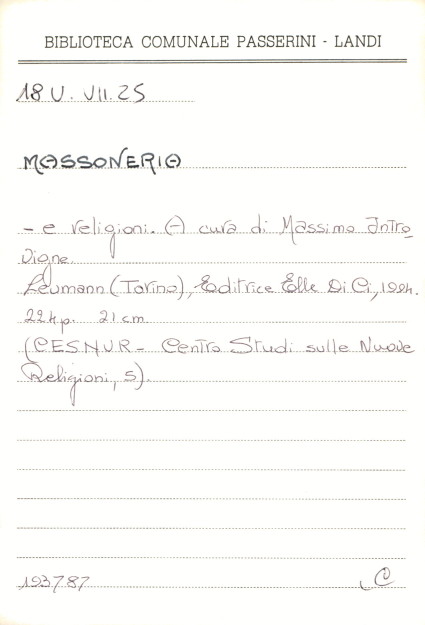 BIBLIOTECA COMUNALE PASSERINI - LANDI
18 U. VII. 25
MASSONERIA
- e religioni. (A cura di Massimo Intro_
vigne.
Leumann (Torino), Editrice Elle Di Ci, 1994.
224 p. 21 cm.
(CESNUR - Centro Studi sulle Nuove
Religioni, 5).
193787 C